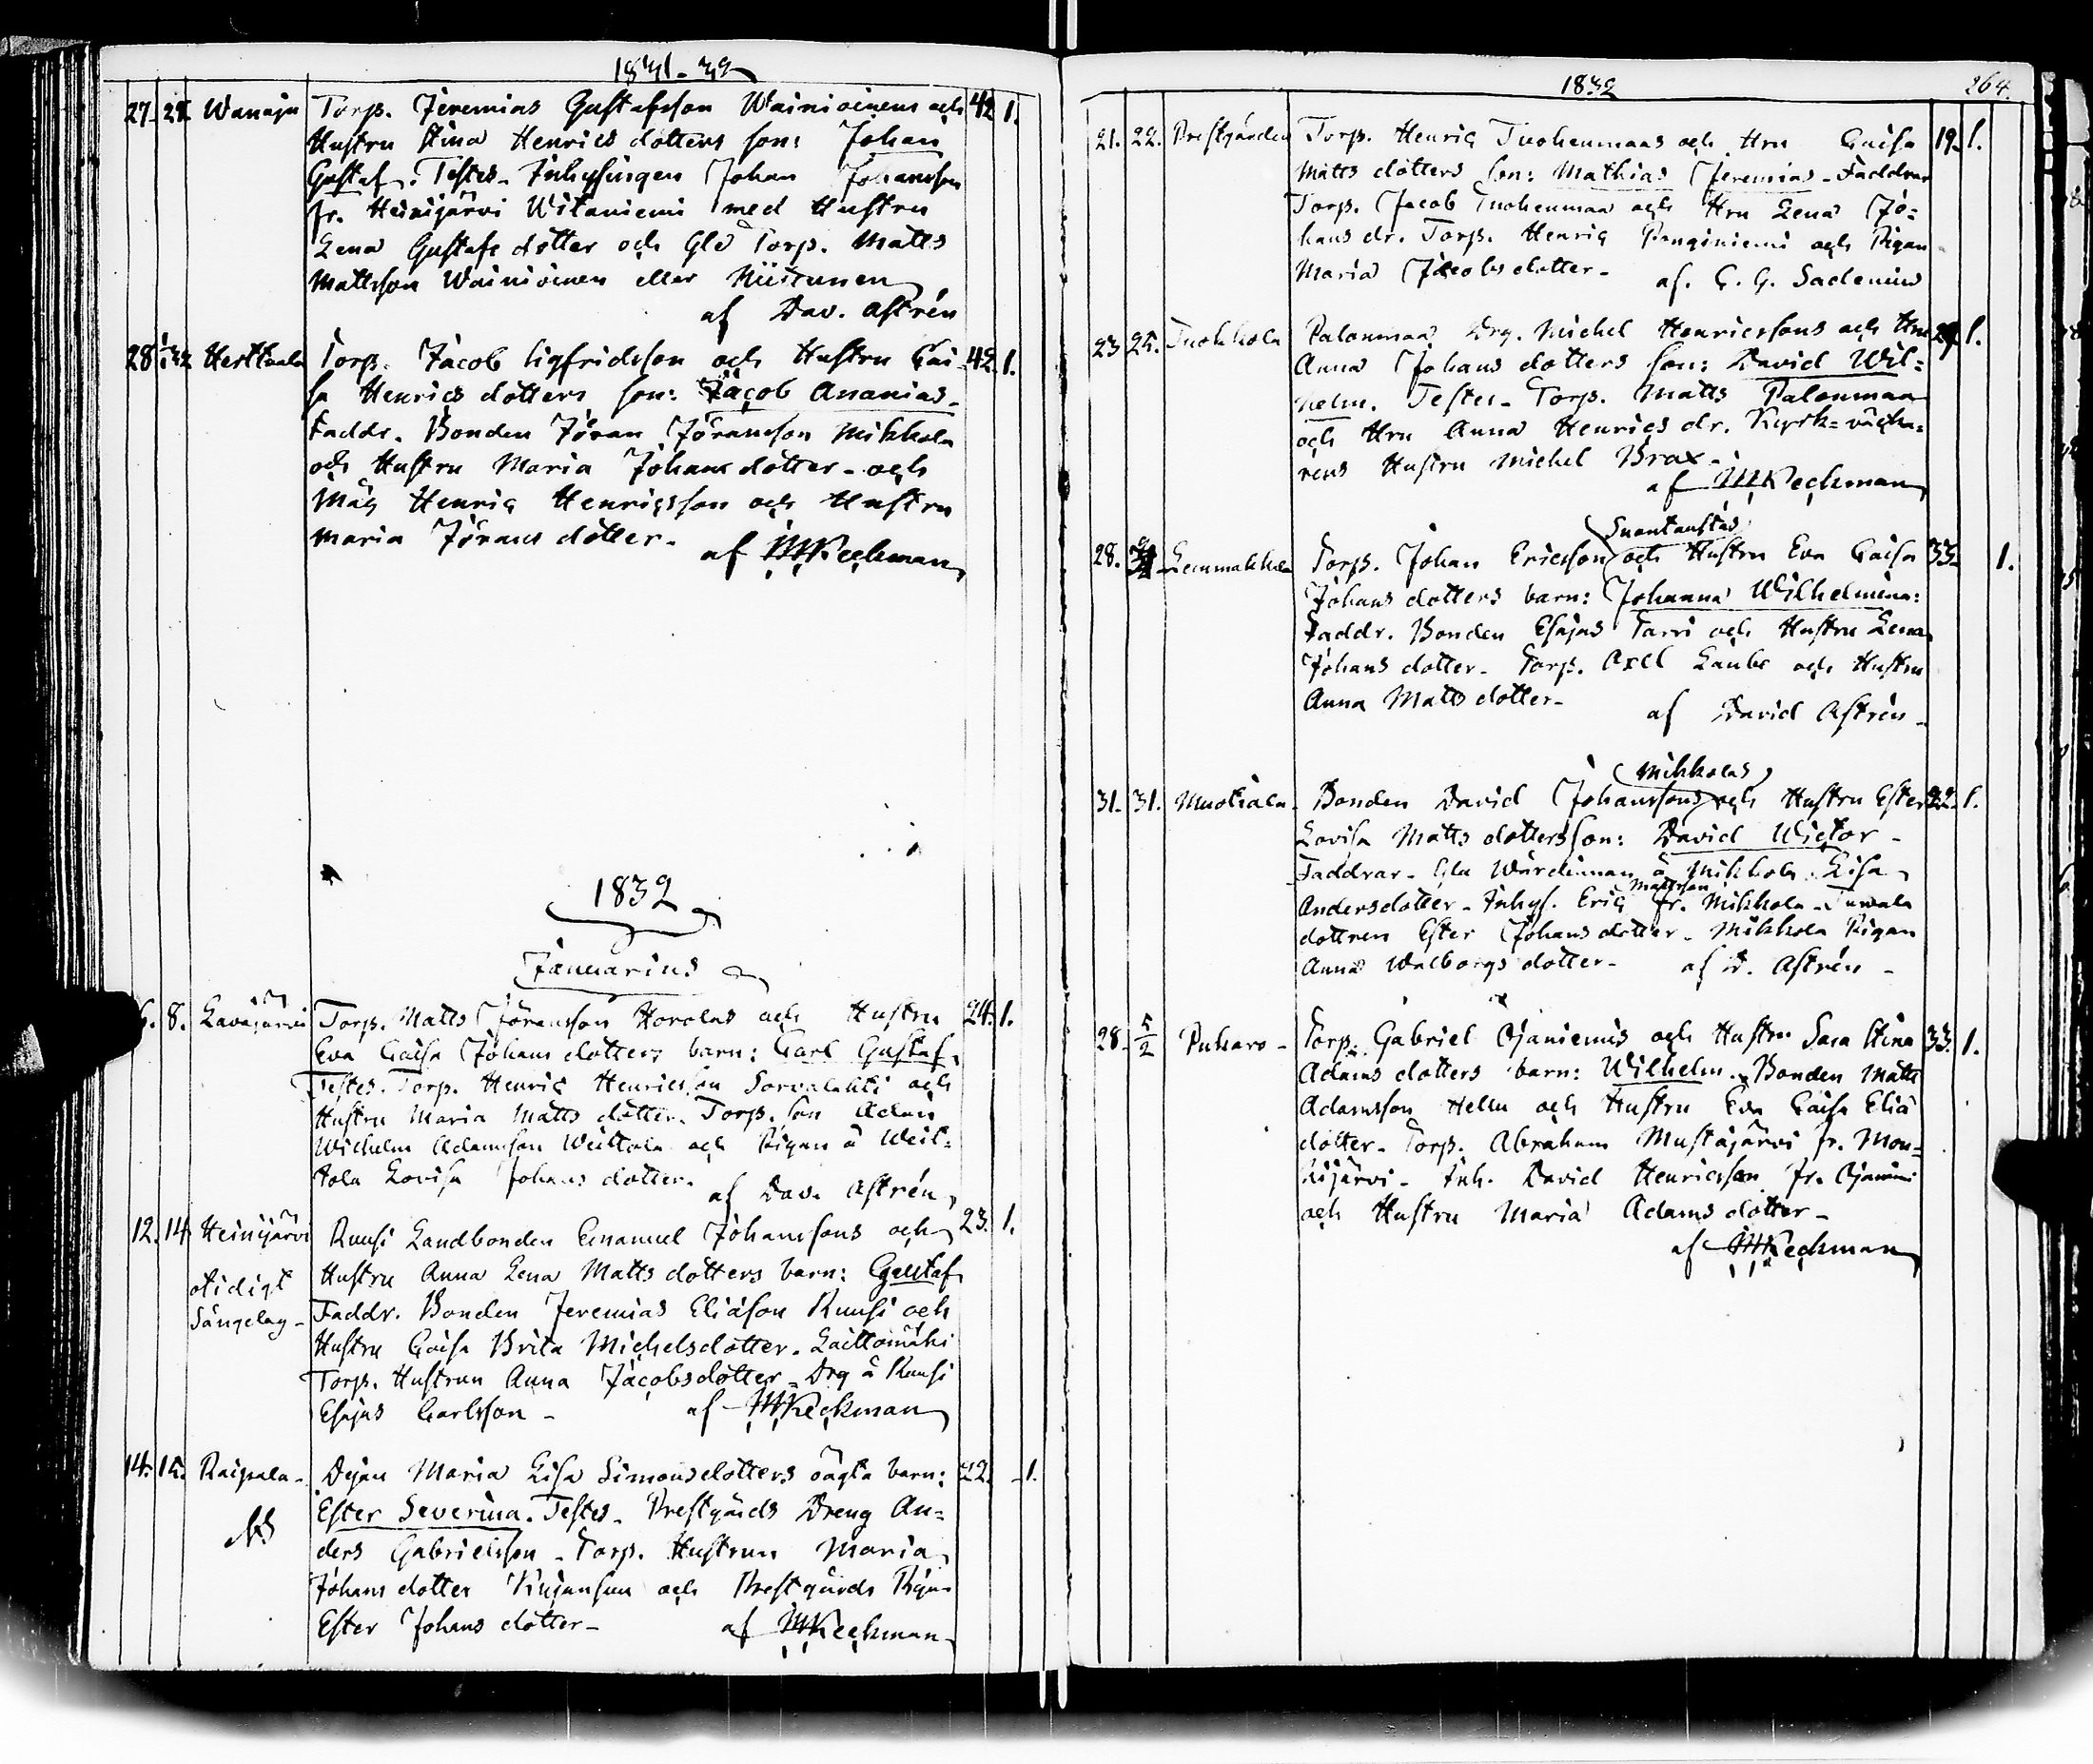 1831-32
27. 29. Wanaja Torp. Jeremias Gustafsson Wainioinens och 42 1.
Hustru Stina Henrics dotters son: Johan
Gustaf. Testes. Inhysingen Johan Johansson
fr. Heinijärvi Witaniemi med Hustru
Lena Gustafs dotter och Gld Torp. Matts
Mattsson Wainioinen eller Niistunen
af Dav. Astrén
28 Herttuala Torp. Jacob Sigfridsson och Hustru Cai- 42. 1.
sa Henrics dotters son: Jacob Ananias-
Faddr. Bonden Jöran Jöransson Mikkola
och Hustru Maria Johans dotter - och
Måg Henric Henricsson och Hustru
Maria Jörans dotter. af M Peckman
1832
Januarius
6. 8. Lavajärvi Torp. Matts Jöransson Horolas och Hustru 24. 1.
Eva Caisa Johans dotters barn: Carl Gustaf.
Testes. Torp. Henric Henricsson Sorvalahti och
Hustru Maria Matts dotter. Torp. son Adam
Wilhelm Adamsson Weittola och Pigan å Weit-
tola Lovisa Johans dotter. af Dav. Astrén
12. 14. Heinijärvi Ruusi Landbonden Emanuel Johanssons och 23. 1.
otidigt Hustru Anna Lena Matts dotters barn: Gustaf
Sängelag - Faddr. Bonden Jeremias Eliäson Ruusi och
Hustru Caisa Brita Michelsdotter. Laittomäki
Torp. Hustrun Anna Jacobsdotter - Drg å Ruusi
Esajas Carlsson - af M Peckman
14. 15. Raipala - Dejan Maria Lisa Simonsdotters oägta barn: 22. 1.
Ester Severina. Testes. Prestgårds Dreng An-
ders Gabrielsson - Torp. Hustrun Maria
Johans dotter och Prestgårds Pigan
Ester Johans dotter - af M Peckman
1832 264.
21. 22. Prestgården Torp. Henric Tuohenmaas och Hru Caisa 19. 1.
Matts dotters son: Mathias Jeremias - Faddrar
Torp. Jacob Tuohenmaa och Hru Lena Jo-
hans dr. Torp. Henric Penginiemi och Pigan
Maria Jacobs dotter - af. G. G. Sadenius
23 25. Tuokkola Palonmaa Drg. Michel Henricssons och Hru 29. 1.
Anna Johans dotters son: David Wil-
helm. Testes - Torp. Matts Palonmaa
och Hru Anna Henrics dr. Kyrk-väcka-
rens Hustru Michel Brax -
af M Peckman
Suontaustas
28. Lemmakkola Torp. Johan Ericsson och Hustru Eva Caisa 33. 1.
Johans dotters barn: Johanna Wilhelmina:
Faddr. Bonden Esajas Tarri och Hustru Lena
Johans dotter - Torp. Axel Laube och Hustru
Anna Matts dotter - af David Astrén -
Mikkolas
31. 31. Muotiala - Bonden David Johanssons och Hustru Ester 22. 1.
Lovisa Matts dotters son: David Wictor -
Faddrar - Gla Wärdinnan å Mikkola Lisa
Mattsson
Andersdotter - Inhys. Eric fr. Mikkola - Tuvala
dottren Ester Johans dotter - Mikkola Pigan
Anna Walborgs dotter - af D. Astrén -
28. 5/2 Puharo - Torp. Gabriel Ojaniemis och Hustru Sara Stina 33. 1.
Adams dotters barn: Wilhelm. Bonden Matts
Adamsson Hellu och Hustru Eva Caisa Eliä
dotter - Torp. Abraham Mustajärvi fr. Mou-
hijärvi - Inh. David Henricsson fr. Ojaniemi
och Hustru Maria Adams dotter -
af M Peckman